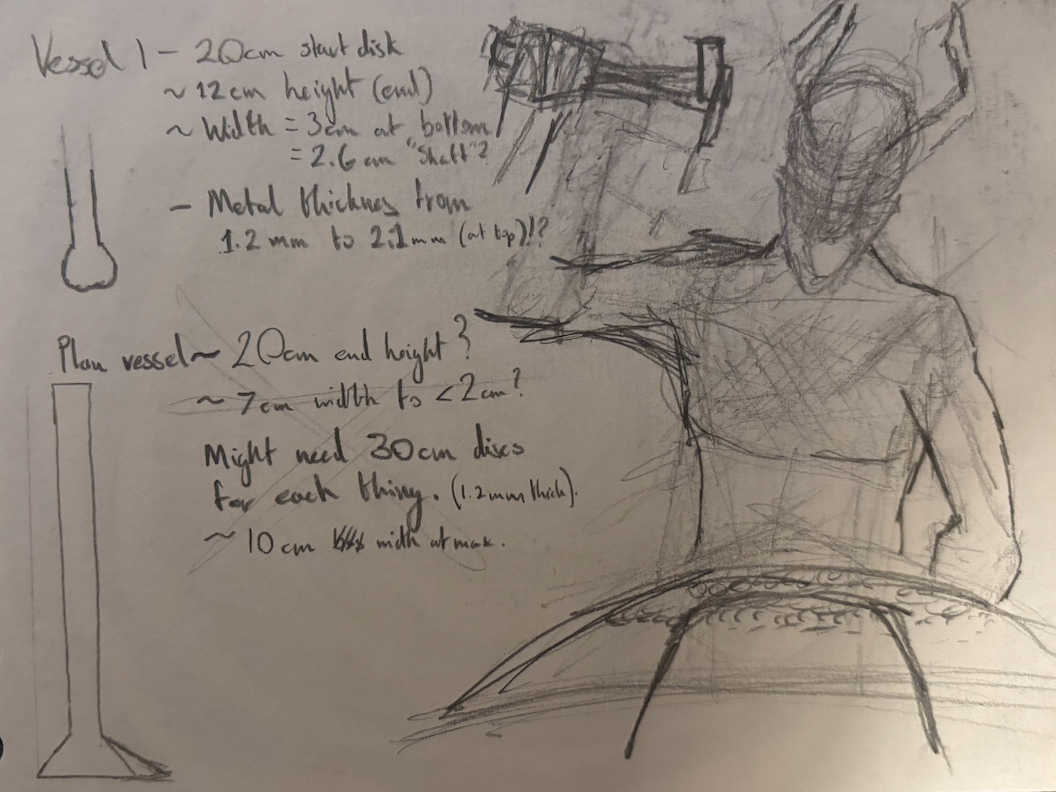 Vessel 1 – 20cm start disk
~ 12cm height (end)
~ Width = 3cm at bottom
= 2.6cm "Shaft"?
– Metal thicknes from
1.2mm to 2.1mm (at top)!?
Plan vessel ~ 20cm end height?
~ 7cm width to <2cm?
Might need 30cm discs
for each thing. (1.2mm thick).
~ 10cm width at max.